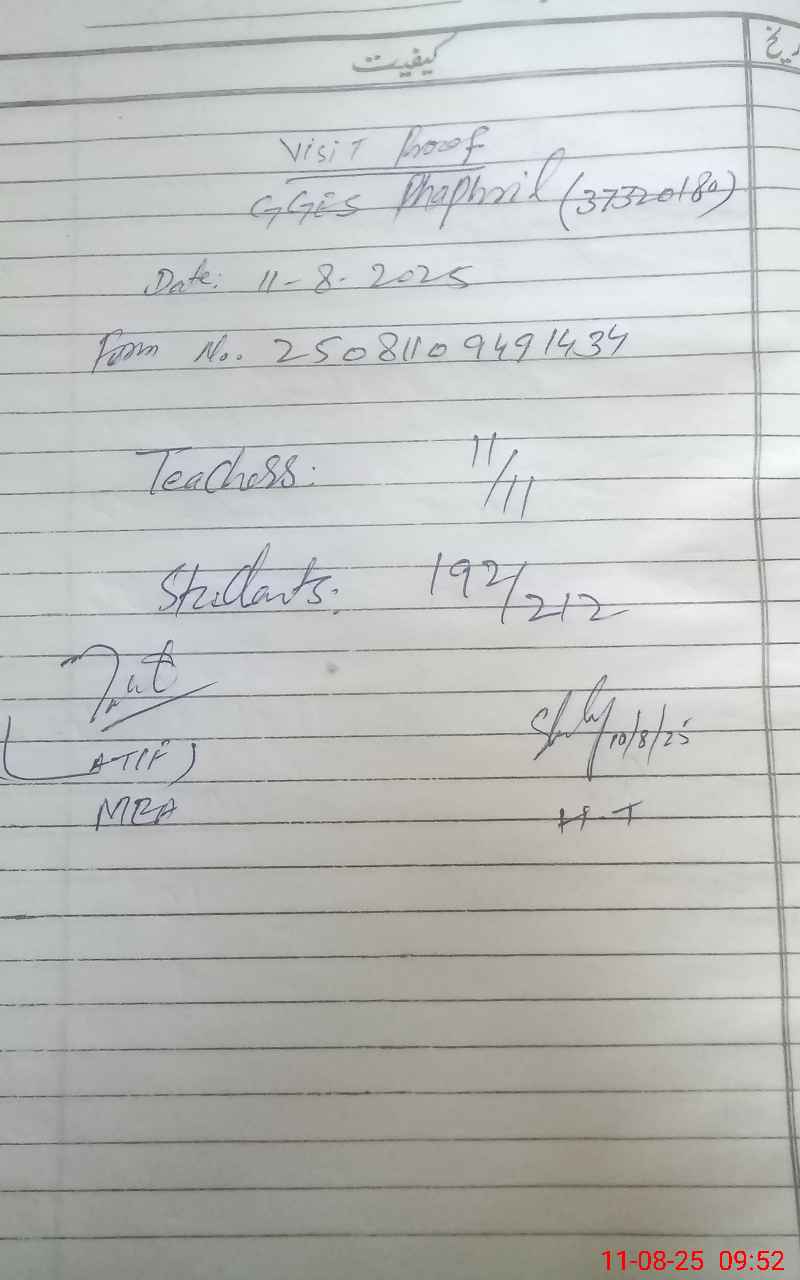 کیفیت
Visit Proof
GGES Phaphril (37320180)
Date: 11-8-2025
Form No. 25081109491434
Teachers: 11/11
Students: 192/212
10/8/25
(ATIF)
MEA H-T
11-08-25 09:52